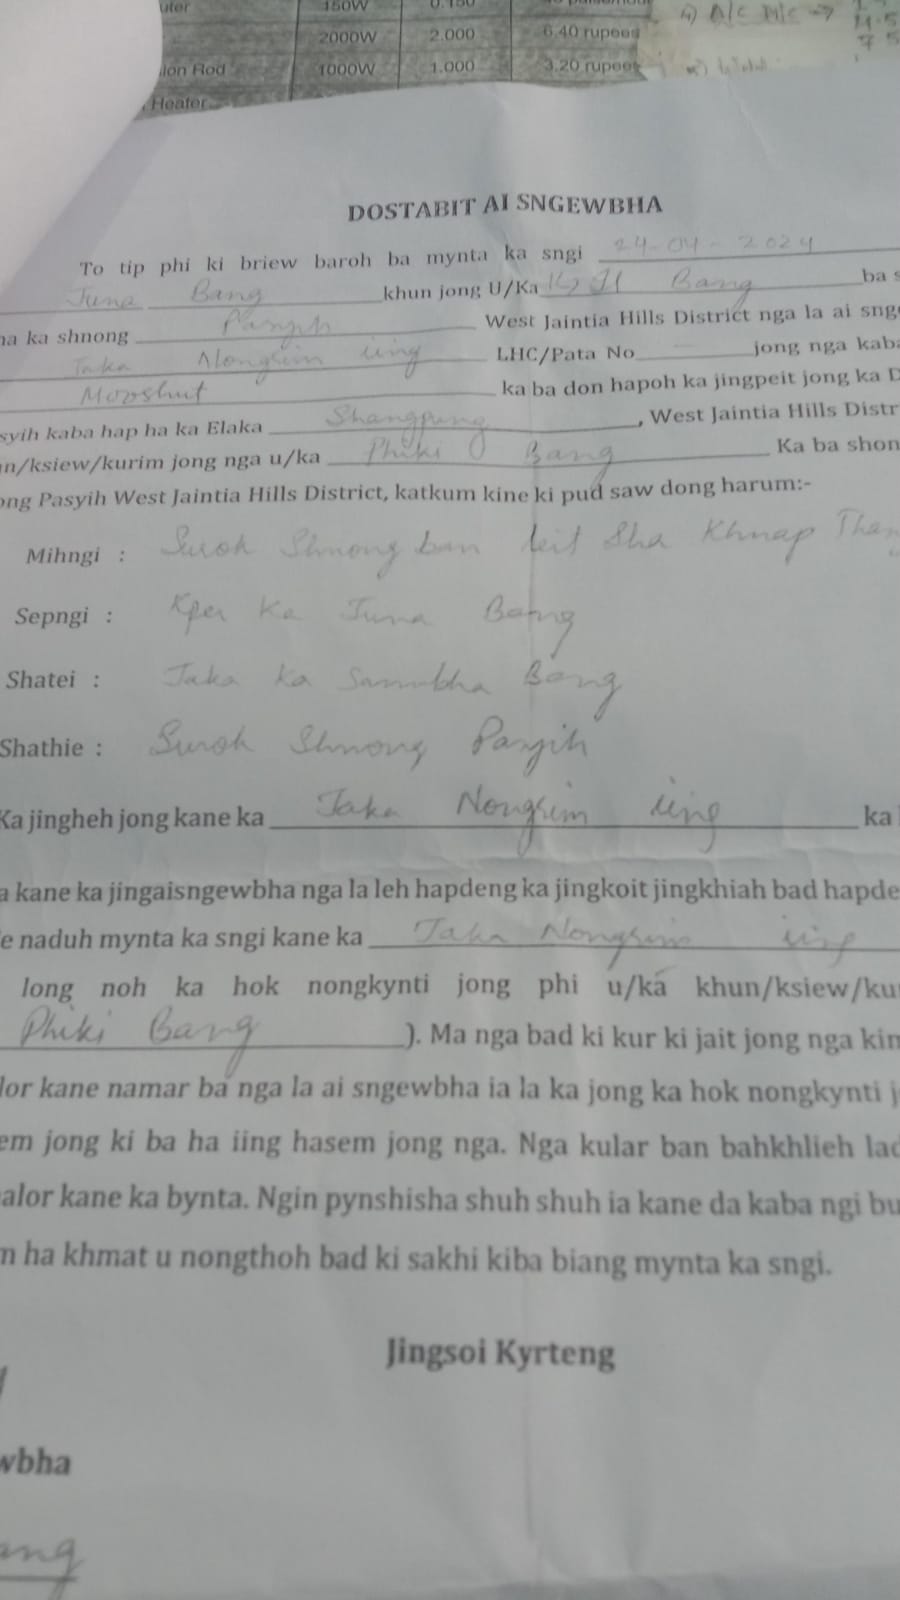 uter 150W 0.150
2000W 2.000 6.40 rupees
ion Rod 1000W 1.000 3.20 rupees
Heater
4) A/C M/C →
DOSTABIT AI SNGEWBHA
To tip phi ki briew baroh ba mynta ka sngi 24-04-2024
Juna Bang khun jong U/Ka Bang ba s
na ka shnong Pasyih West Jaintia Hills District nga la ai snge
Jaka Nongrim iing LHC/Pata No jong nga kaba
Mooshut ka ba don hapoh ka jingpeit jong ka D
syih kaba hap ha ka Elaka Shangpung, West Jaintia Hills Distr
un/ksiew/kurim jong nga u/ka Phiki Bang Ka ba shon
ong Pasyih West Jaintia Hills District, katkum kine ki pud saw dong harum:-
Mihngi : Surok Shnong ban leit Sha Khnap
Sepngi : Kper Ka Juna Bang
Shatei : Jaka Ka Bang
Shathie : Surok Shnong Pasyih
Ka jingheh jong kane ka Jaka Nongrim iing ka
a kane ka jingaisngewbha nga la leh hapdeng ka jingkoit jingkhiah bad hapde
e naduh mynta ka sngi kane ka Jaka Nongrim iing
long noh ka hok nongkynti jong phi u/ka khun/ksiew/ku
Phiki Bang ). Ma nga bad ki kur ki jait jong nga kin
lor kane namar ba nga la ai sngewbha ia la ka jong ka hok nongkynti j
em jong ki ba ha iing hasem jong nga. Nga kular ban bahkhlieh lad
alor kane ka bynta. Ngin pynshisha shuh shuh ia kane da kaba ngi bu
m ha khmat u nongthoh bad ki sakhi kiba biang mynta ka sngi.
Jingsoi Kyrteng
wbha
ang